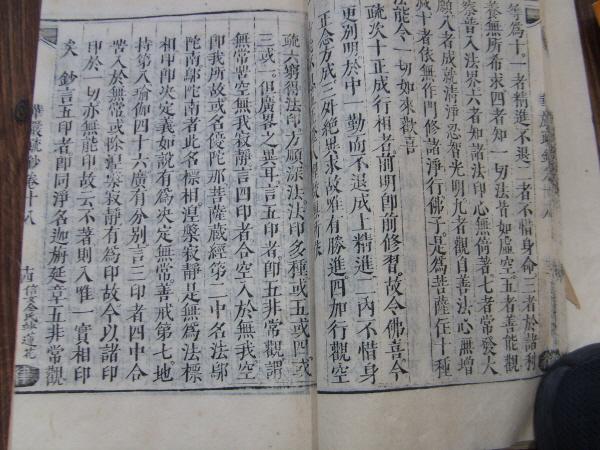 等爲十。一者精進不退二者不惜身命三者於諸利
養無所希求四者知一切法皆如虛空。五者善能觀
察普入法界六者知諸法印心無倚著七者常發大
願八者成就清淨忍智光明。九者觀自善法心無增
減十者依無作門修諸淨行佛子。是爲菩薩住十種
法能令一切如來歡喜
疏次十正成行相者前明卽前修習。故令佛喜今
更別明於中一勤而不退成上精進二內不惜身
正念方成三外絶異求故唯有勝進四加行觀空
疏六窮得法印方順深法法印多種或五或四或
三或一。但廣畧之異耳言五印者卽五非常觀謂
無常苦空無我寂靜言四印者合空入於無我空
卽我所故或名優陀那菩薩藏經第二中名法鄔
陀南鄔陀南者此名標相涅槃寂靜是無爲法標
相印卽決定義如說有爲決定無常。善戒第七。地
持第八瑜伽四十六廣有分别言三印者四中合
苦入於無常或除涅槃寂靜有爲印故今以諸印
印於一切亦無能印故云不著則入唯一實相印
矣 鈔言五印者卽同淨名迦旃延章五非常觀
華嚴疏鈔卷十八